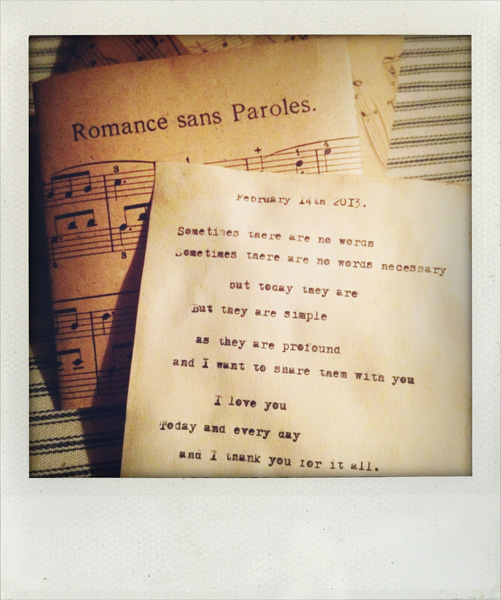 Romance sans Paroles.
February 14th 2013.
Sometimes there are no words
Sometimes there are no words necessary
but today they are
But they are simple
as they are profound
and I want to share them with you
I love you
Today and every day
and I thank you for it all.